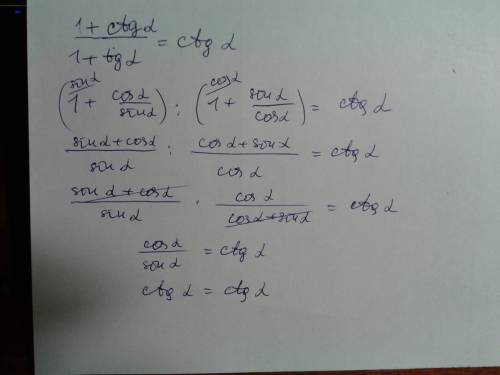 (1 + ctg α)/(1 + tg α) = ctg α
(1 + cos α/sin α) : (1 + sin α/cos α) = ctg α
(sin α + cos α)/sin α : (cos α + sin α)/cos α = ctg α
(sin α + cos α)/sin α · cos α/(cos α + sin α) = ctg α
cos α/sin α = ctg α
ctg α = ctg α